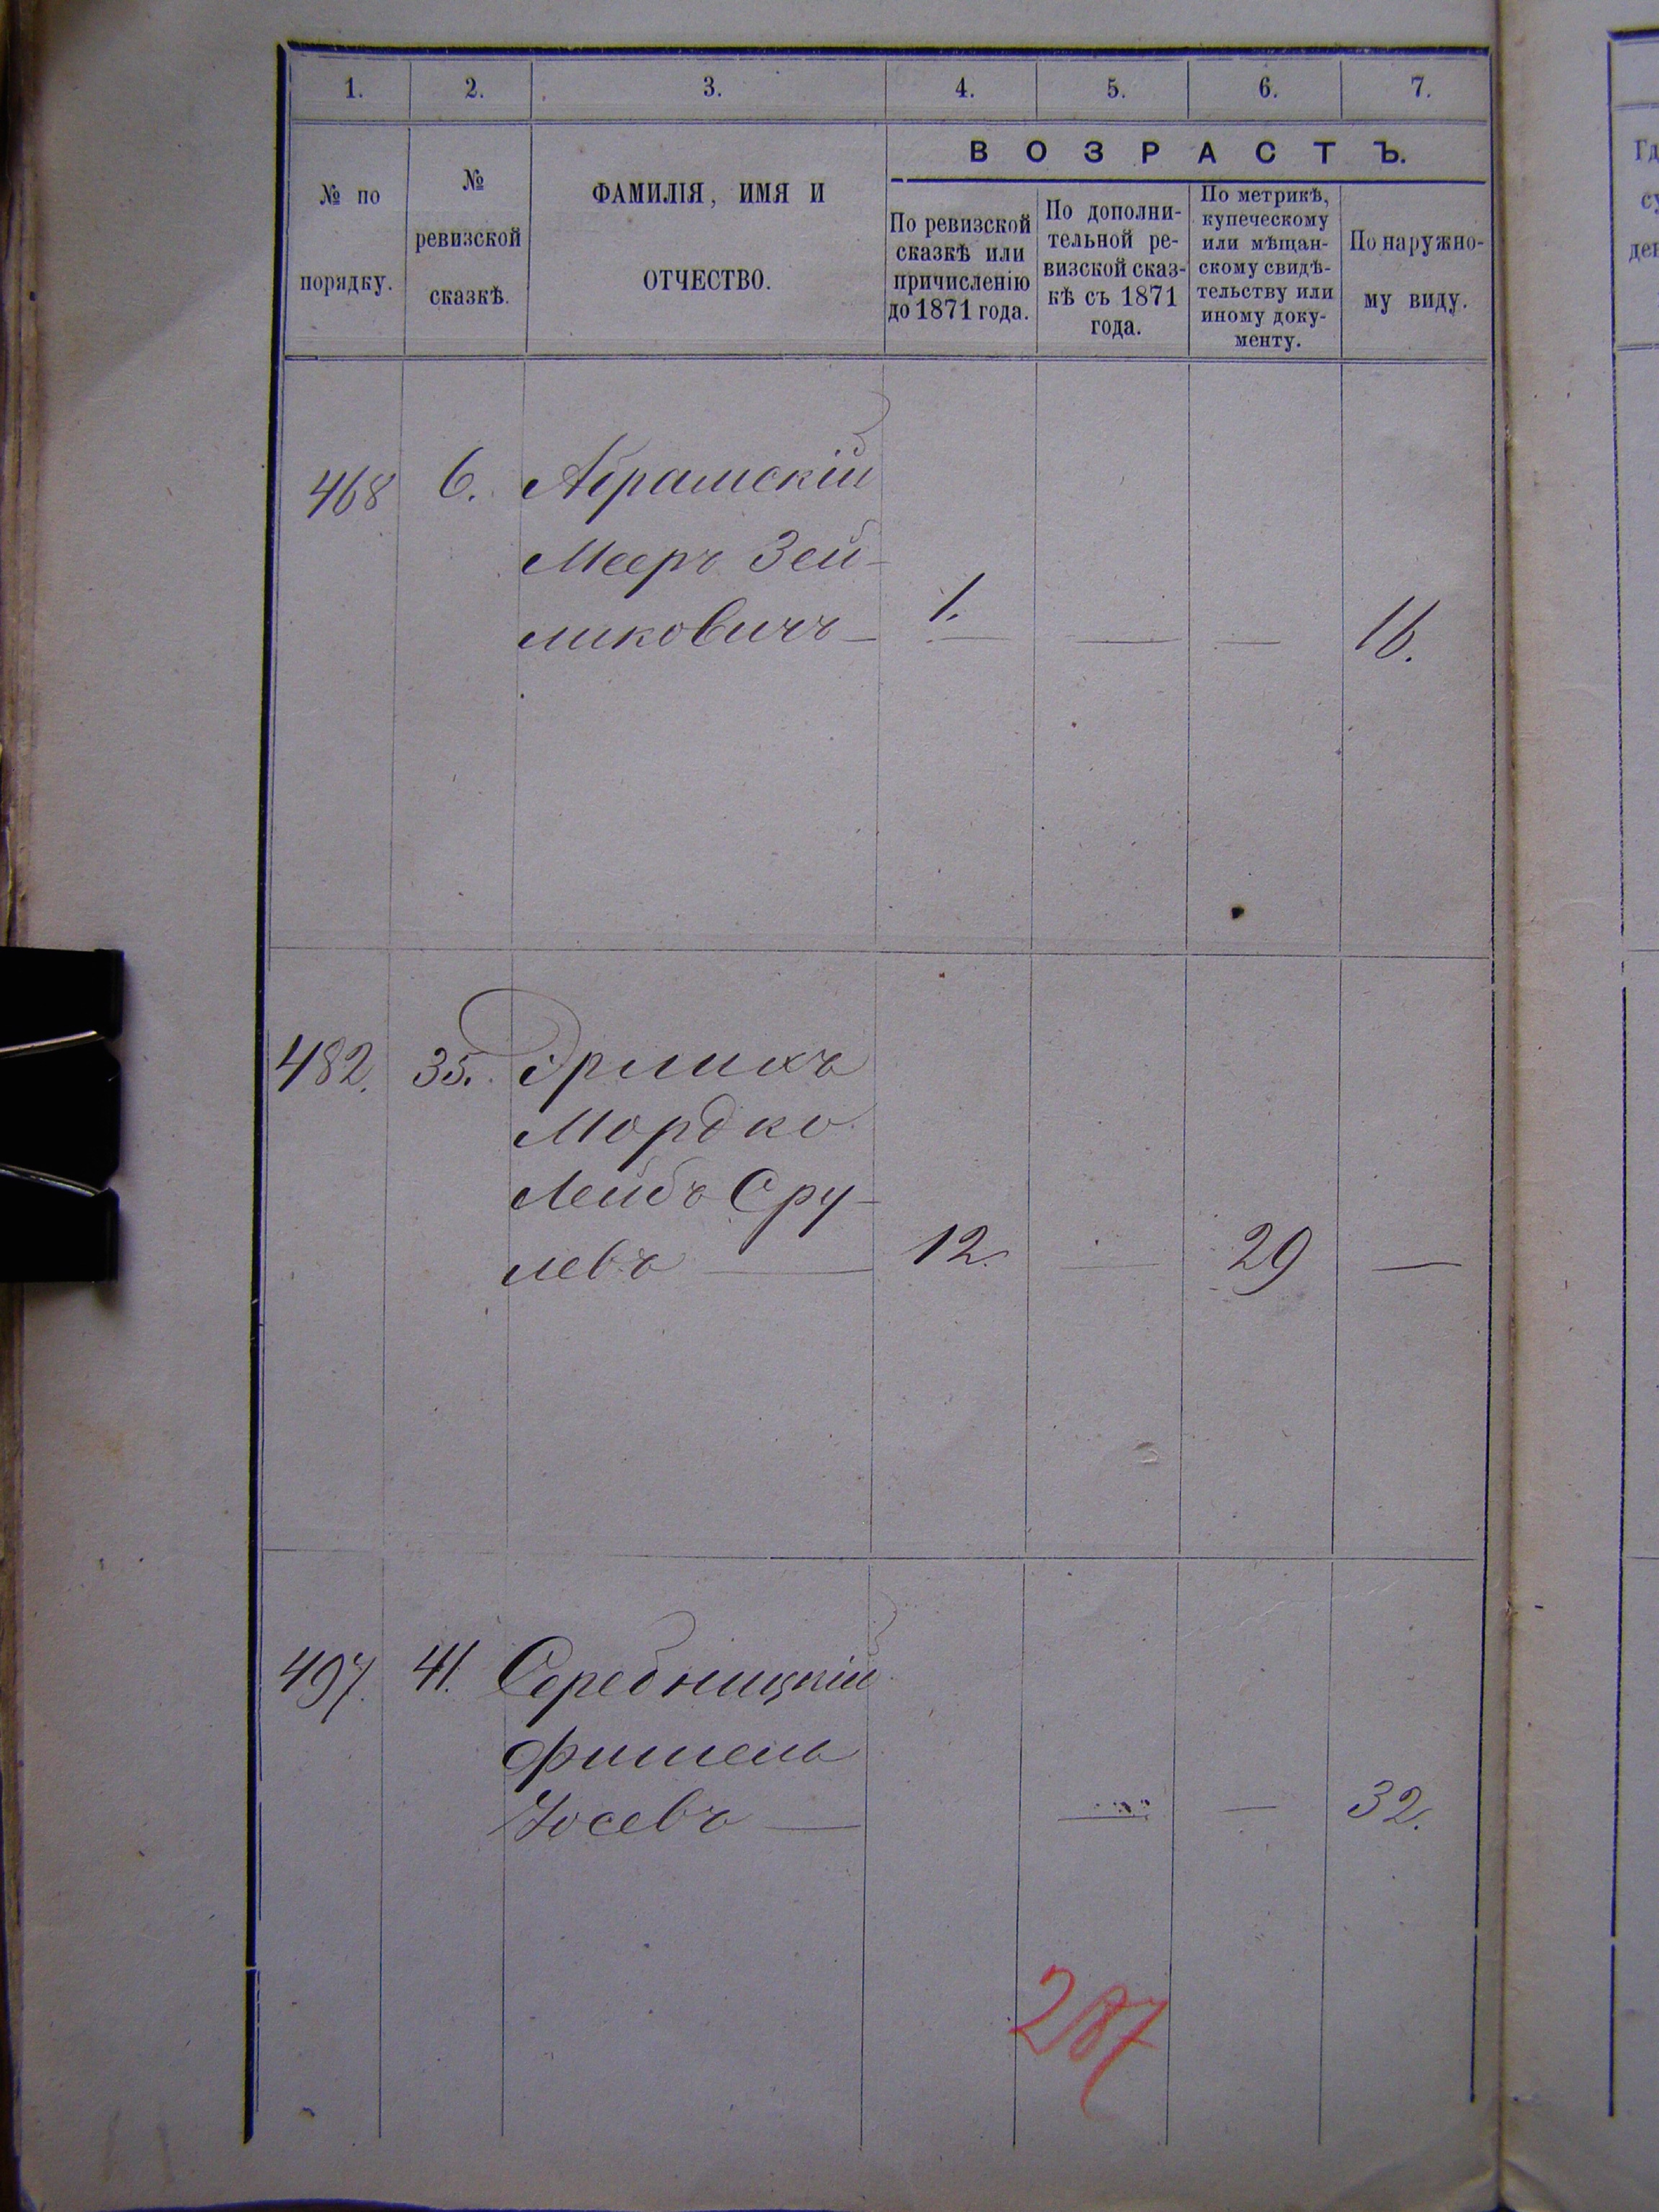 1. 2. 3. 4. 5. 6. 7.
№ по
порядку.
№
ревизской
сказкѣ.
ФАМИЛІЯ, ИМЯ И
ОТЧЕСТВО.
ВОЗРАСТЪ.
По ревизской
сказкѣ или
причисленію
до 1871 года.
По дополни-
тельной ре-
визской сказ-
кѣ съ 1871
года.
По метрикѣ,
купеческому
или мѣщан-
скому свидѣ-
тельству или
иному доку-
менту.
По наружно-
му виду.
468 6. Абрамскій
Мееръ Зей-
ликовичъ — 1. — — 16.
482. 35. Эрлихъ
Мордко
Лейбъ Сру-
левъ — 12. — 29 —
497. 41. Серебницкій
Фишель
Іосевъ — — — 32.
287